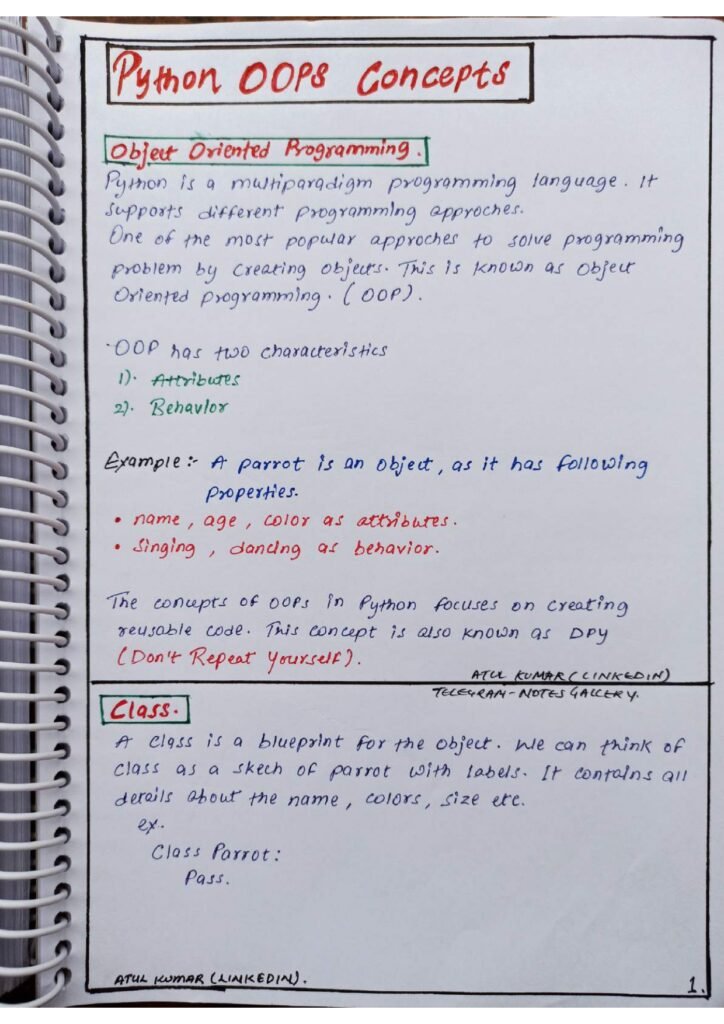 Python OOPs Concepts
Object Oriented Programming.
Python is a multiparadigm programming language. It
supports different programming approches.
One of the most popular approches to solve programming
problem by creating objects. This is known as object
Oriented programming. (OOP).
·OOP has two characteristics
1). Attributes
2). Behavior
Example :- A parrot is an object, as it has following
properties.
• name, age, color as attributes.
• Singing, dancing as behavior.
The concepts of OOPs in Python focuses on creating
reusable code. This concept is also known as DPY
(Don't Repeat Yourself).
ATUL KUMAR (LINKEDIN)
TELEGRAM - NOTES GALLERY.
Class.
A class is a blueprint for the object. We can think of
class as a skech of parrot with labels. It contains all
details about the name, colors, size etc.
ex.
Class Parrot:
Pass.
ATUL KUMAR (LINKEDIN).
1.